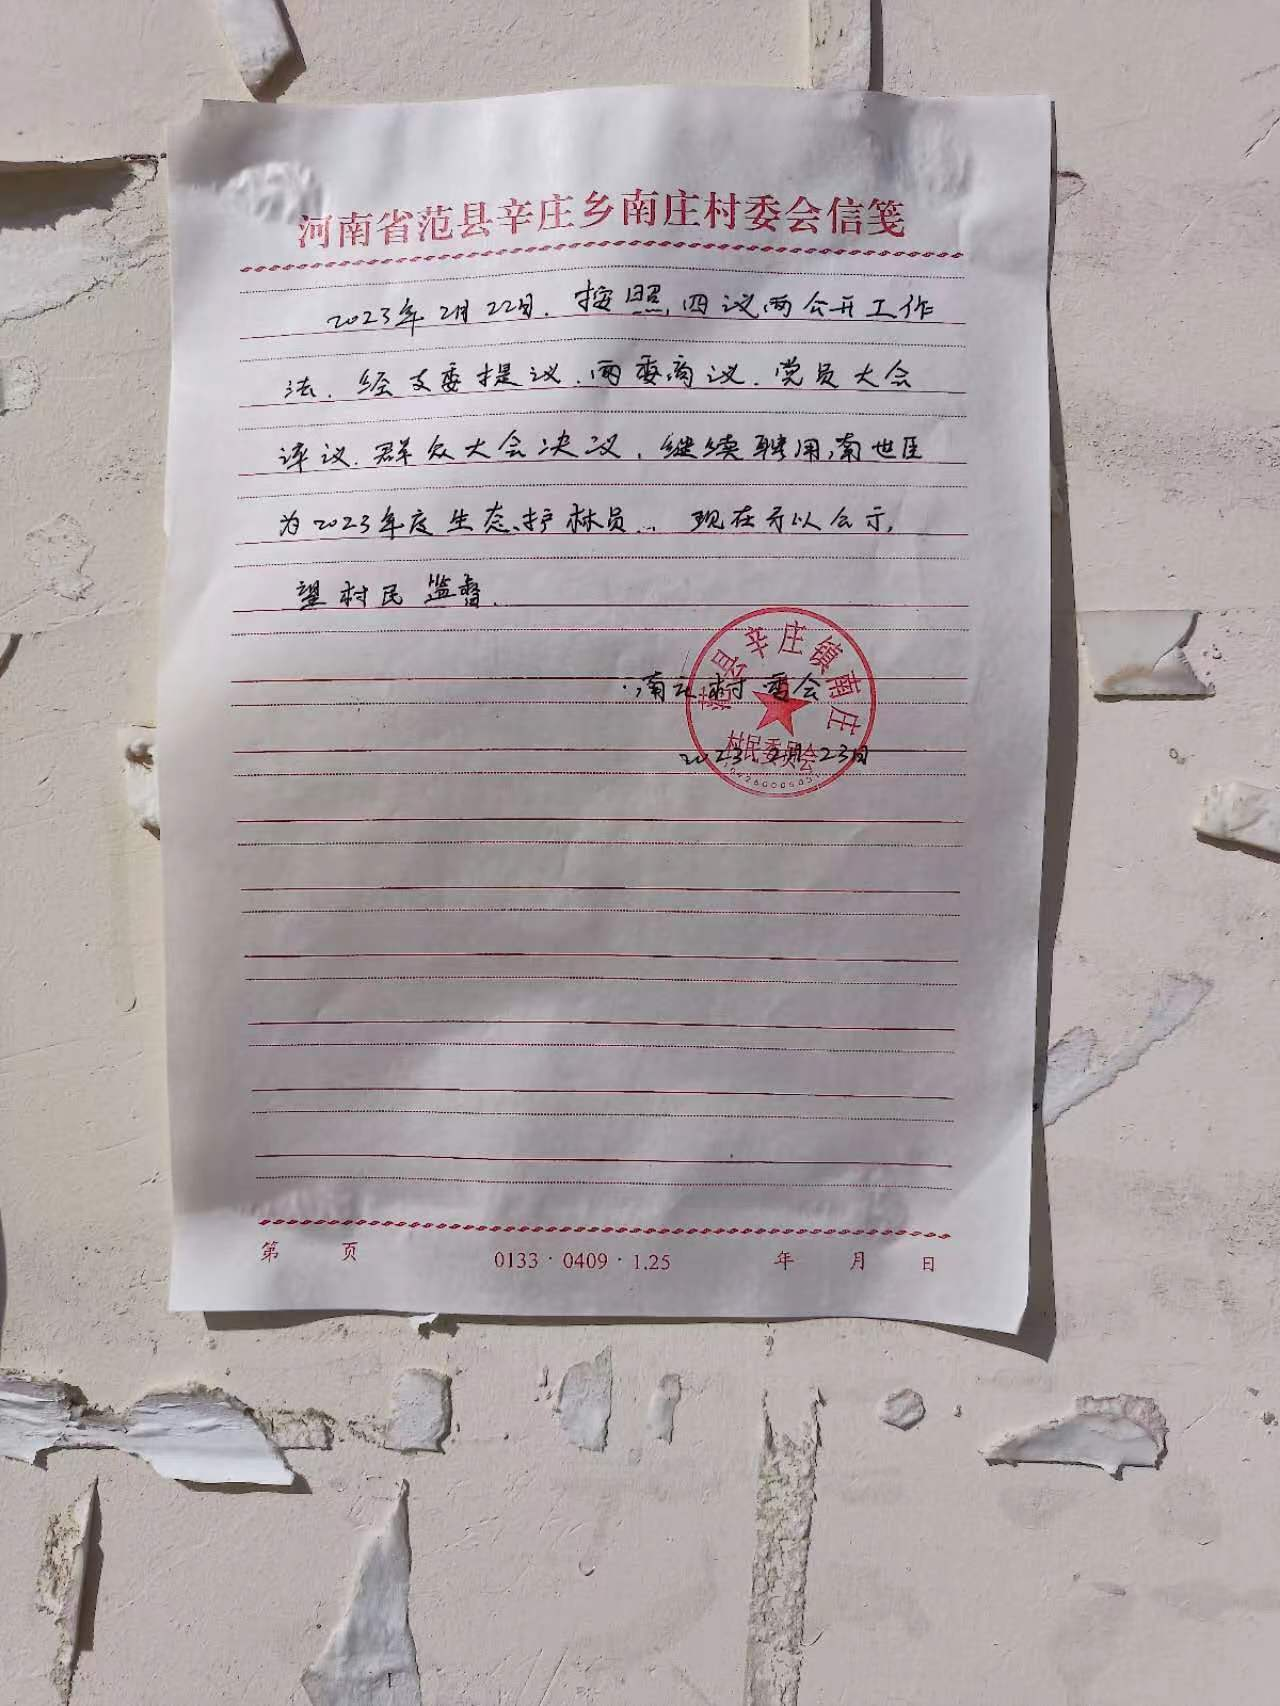 河南省范县辛庄乡南庄村委会信笺
2023年2月22日.按照四议两公开工作
法.经支委提议.两委商议.党员大会
评议.群众大会决议,继续聘用南世臣
为2023年度生态护林员.现在予以公示,
望村民监督.
南庄村委会
2023 2月23日
范县辛庄镇南庄
村民委员会
第 页 0133·0409·1.25 年 月 日